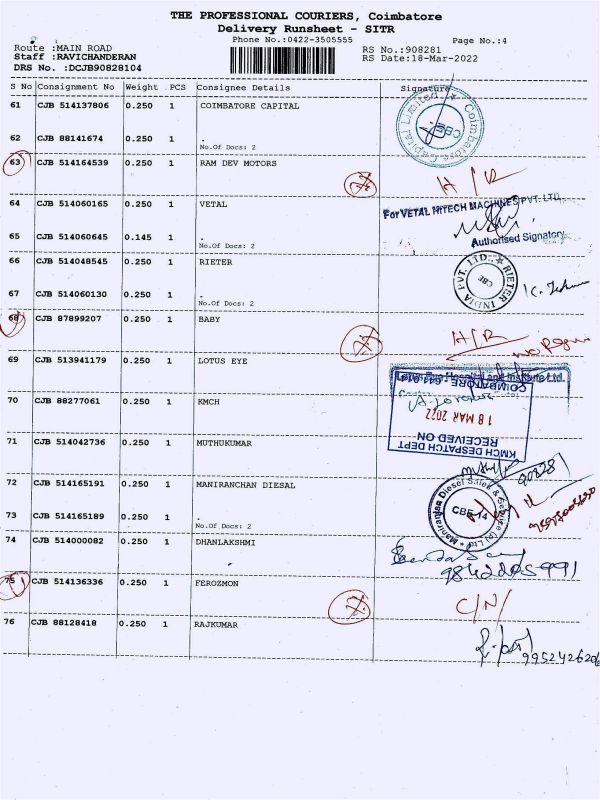 THE PROFESSIONAL COURIERS, Coimbatore
Delivery Runsheet - SITR
Phone No.:0422-3505555
Page No.:4
Route :MAIN ROAD
RS No.:908281
Staff :RAVICHANDERAN
RS Date:18-Mar-2022
DRS No. :DCJB90828104
S No Consignment No Weight PCS Consignee Details Signature
61 CJB 514137806 0.250 1 COIMBATORE CAPITAL
Capital Limited Coimbatore
CBE
62 CJB 88141674 0.250 1 .
No.Of Docs: 2
63 CJB 514164539 0.250 1 RAM DEV MOTORS
64 CJB 514060165 0.250 1 VETAL
For VETAL HITECH MACHINES PVT. LTD
65 CJB 514060645 0.145 1 .
No.Of Docs: 2
Authorised Signatory
66 CJB 514048545 0.250 1 RIETER
RIETER INDIA PVT. LTD.
CBE
67 CJB 514060130 0.250 1 .
No.Of Docs: 2
68 CJB 87899207 0.250 1 BABY
69 CJB 513941179 0.250 1 LOTUS EYE
70 CJB 88277061 0.250 1 KMCH
COIMBATORE
18 MAR 2022
RECEIVED ON
KMCH DESPATCH DEPT
71 CJB 514042736 0.250 1 MUTHUKUMAR
90828/
72 CJB 514165191 0.250 1 MANIRANCHAN DIESAL
Maniranjan Diesel Sales & Service (P) Ltd
CBE-14
73 CJB 514165189 0.250 1 .
No.Of Docs: 2
74 CJB 514000082 0.250 1 DHANLAKSHMI
9842205991
75 CJB 514136336 0.250 1 FEROZMON
C/N/
76 CJB 88128418 0.250 1 RAJKUMAR